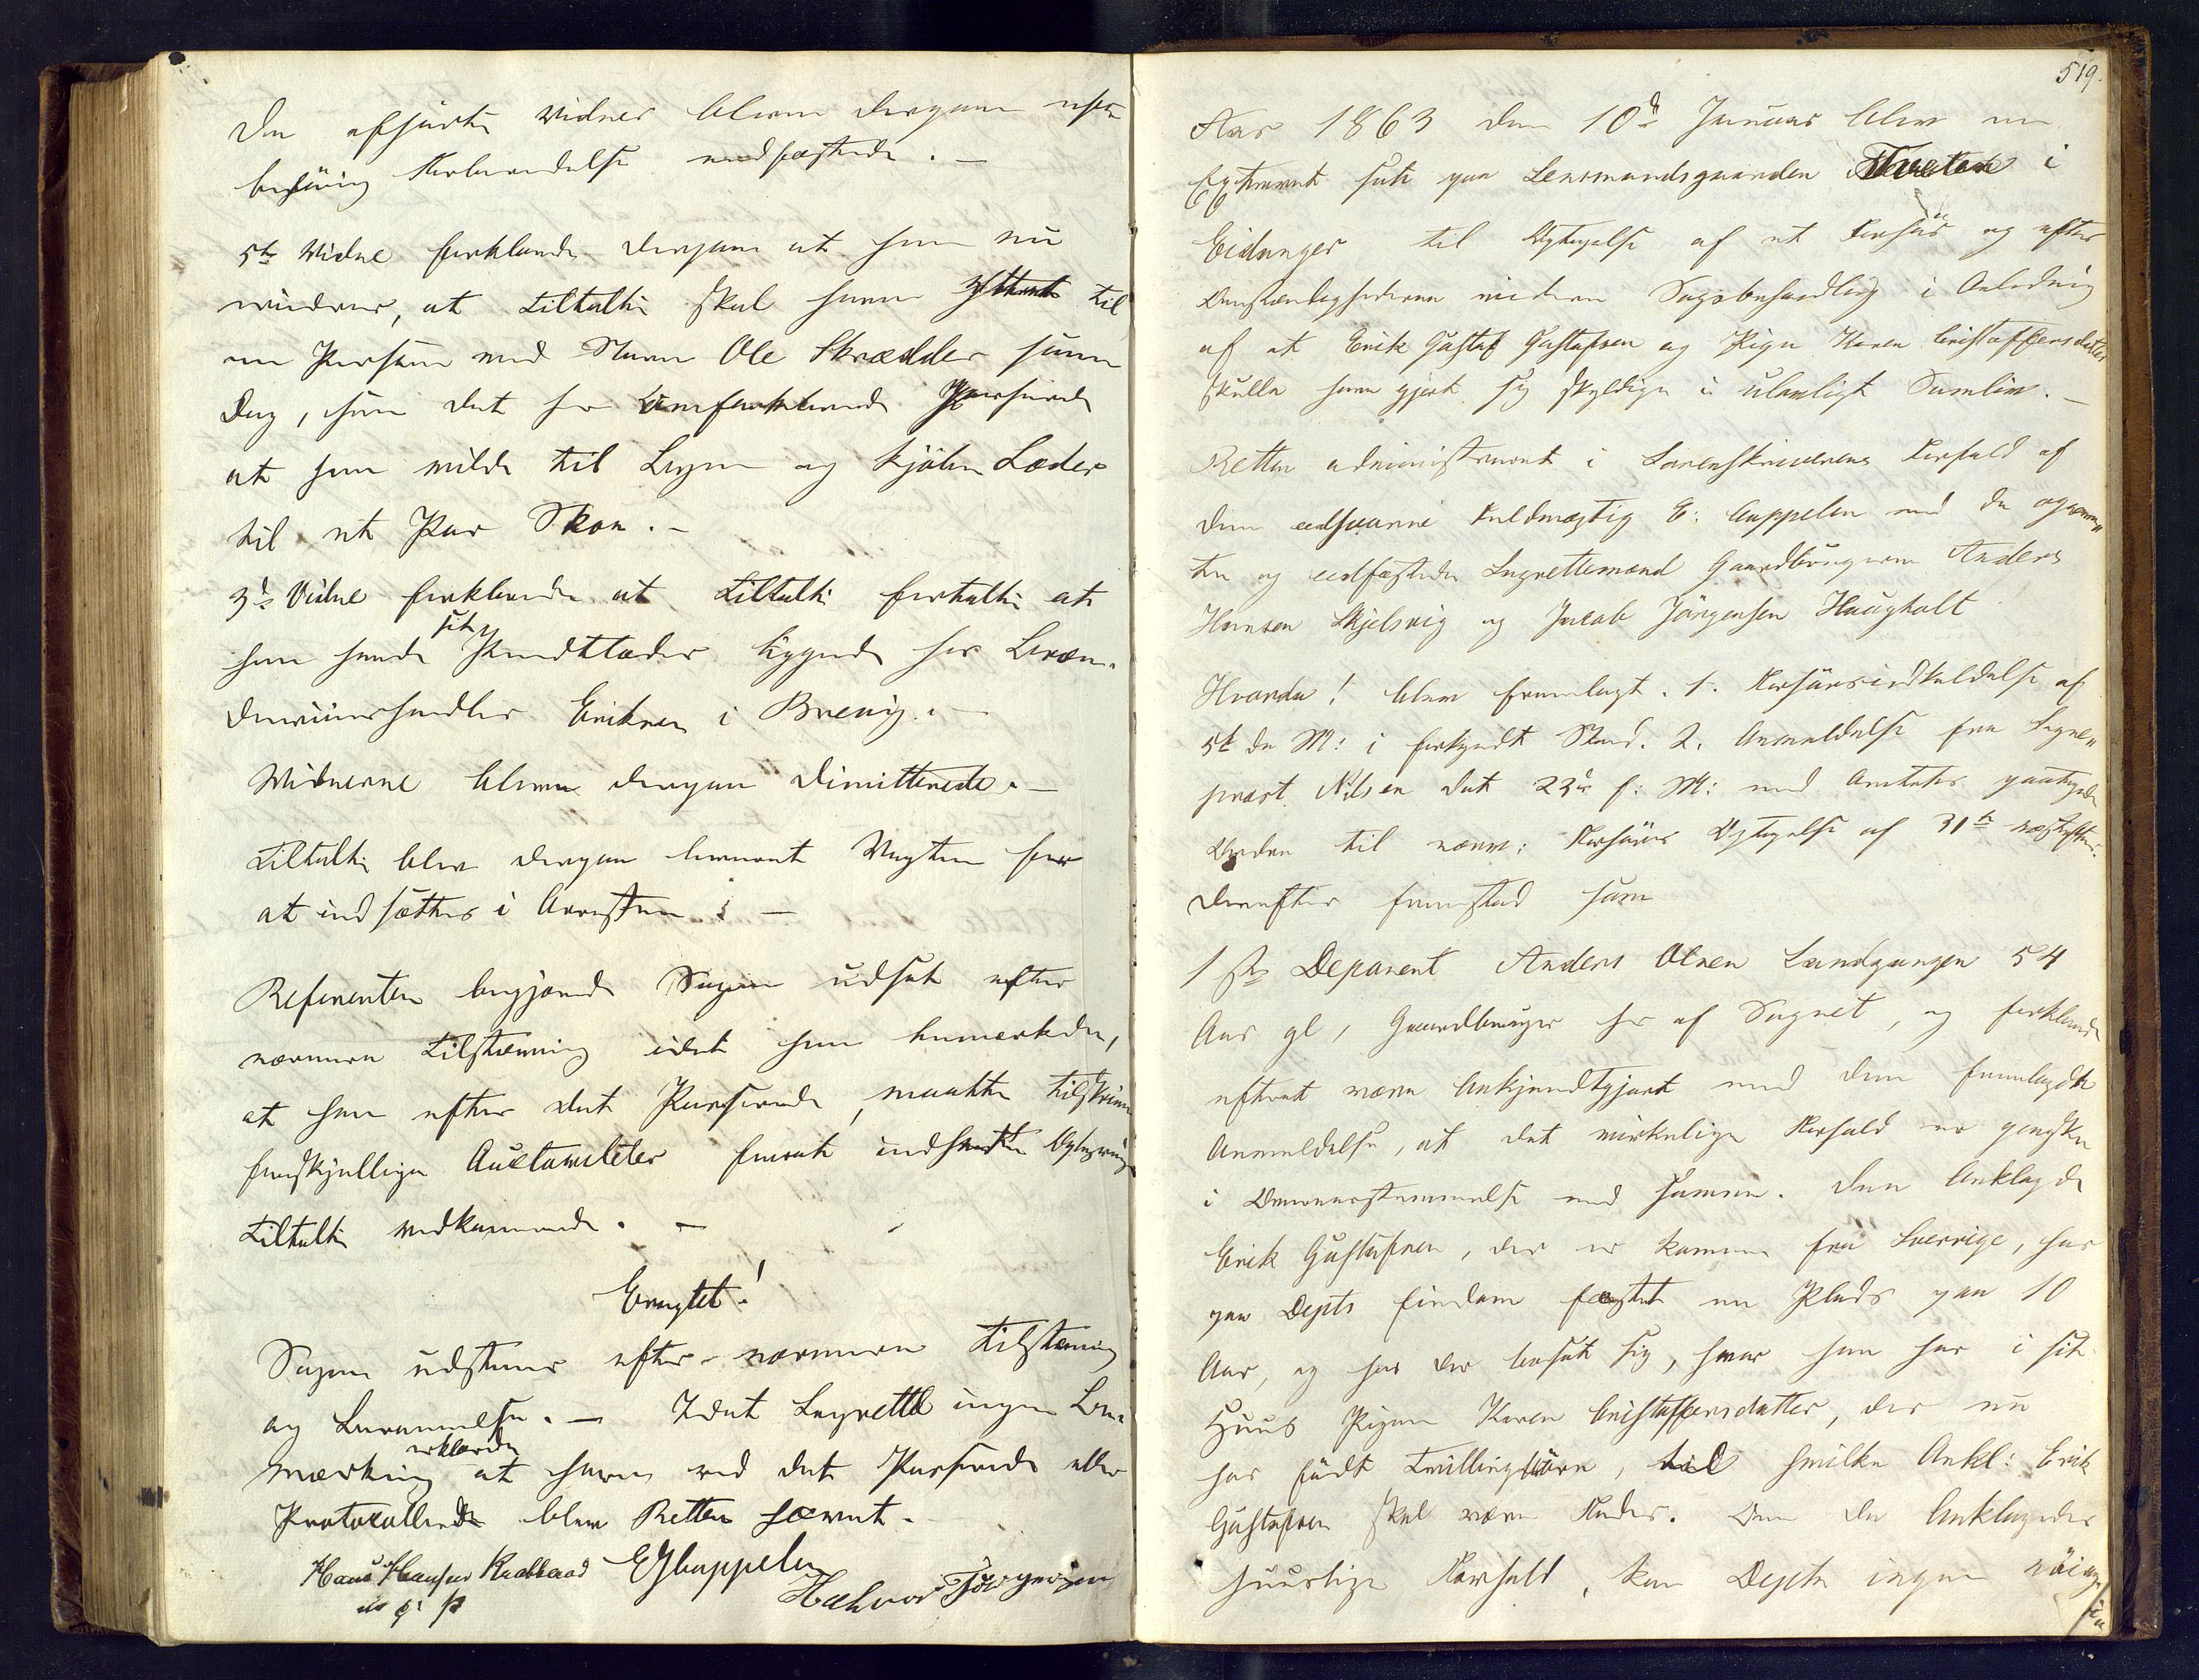 De afhørte Vidner bleve dergaa efter
behørig Forberedelse medfæstede. —
5te Vidne forklarede derhos at han nu
mindes, at Tiltalte skal have yttret til
en Person med Navn Ole Skrædder samme
Dag, som det her omforklarede passerede
at han vilde til Byen og kjøbe Læder
til et Par Skoe. —
3de Vidne forklarede at Tiltalte fortalte at
han havde sit Skindklæder liggende hos Bræn-
deviinshandler Eriksen i Brevig. —
Vidnerne bleve derpaa dimitterede. —
Tiltalte blev derpaa leveret Vagten for
at indsættes i Arresten. —
Referenten begjærede Sagen udsat efter
nærmere Tilstævning idet han bemærkede,
at han efter det Passerede, maatte tilskrive
forskjellige Auctoriteter forat indhente Oplysning
Tiltalte vedkommende. —
Eragtet!
Sagen udstaaer efter nærmere Tilstævning
og Berammelse. — Idet Lagrettet ingen Be-
mærkning erklærede at have ved det Passerede eller
Protocollerede blev Retten hævet.
Hans Hansen
E Cappelen
Halvor Jørgensen
519.
Aar 1863 den 10de Januar blev en
Extraret sat paa Lensmandsgaarden Tveten i
Eidanger til Optagelse af et Forhør og efter
Omstændighederne videre Sagsbehandling i Anledning
af at Erik Gustaf Gustafsen og Pige Karen Cristoffersdatter
skulle have gjort sig skyldige i ulovligt Samliv. —
Retten administreret i Sorenskriverens Forfald af
dem edsvorne Fuldmægtig E. Cappelen med de opnævn„
te og eedfæstede Lagrettesmænd Gaardbrugerne Anders
Hansen Skjelsvig og Jacob Jørgensen Haugholt
Hvorda! blev fremlagt. 1. Forhørsindkaldelse af
5te de M: i forkyndt Stand. 2. Anmeldelse fra Sogne„
præst Nilsen dat 23de f: M: med Amtets paategnede
Ordre til nævn: Forhørs Optagelse af 31te næstefter.
Derefter fremstod som
1ste Deponent Anders Olsen Landgangen 54
Aar gl, Gaardbruger her af Sognet, og forklarede
efterat være bekjendtgjort med den fremlagte
Anmeldelse, at det virkelige Forhold er ganske
i Overensstemmelse med samme. Den Anklagede
Erik Gustafsen, der er kommen fra Sverrige, har
paa Depts Eiendom fæstet en Plads paa 10
Aar, og har der bosat sig, hvor han har i sit
Huus Pigen Karen Cristoffersdatter, der nu
har født Tvillingbørn, til hvilke Ankl: Erik
Gustafsen skal være Fader. Om de Anklagedes
huuslige Forhold, kan Depte ingen nøiag